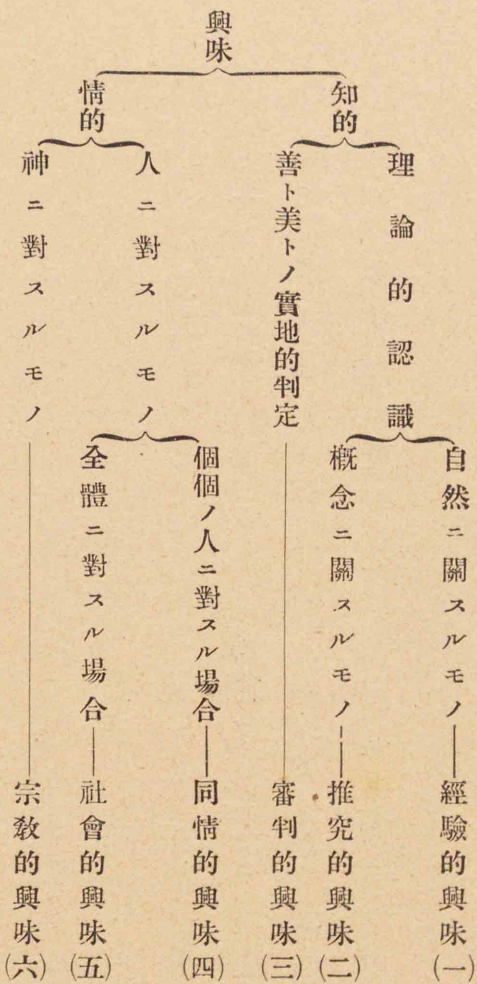 興味
知的
理論的認識
自然ニ關スルモノ――經驗的興味(一)
概念ニ關スルモノ――推究的興味(二)
善ト美トノ實地的判定――審判的興味(三)
情的
人ニ對スルモノ
個個ノ人ニ對スル場合――同情的興味(四)
全體ニ對スル場合――社會的興味(五)
神ニ對スルモノ――宗敎的興味(六)